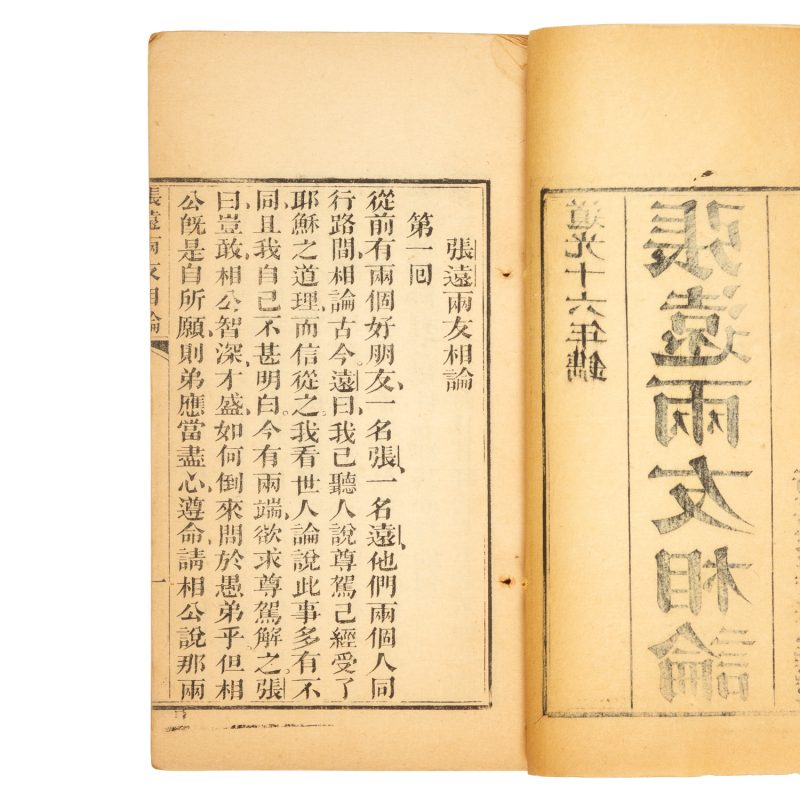 道光十六年鐫
張遠兩友相論
張遠兩友相論
第一囘
從前有兩個好朋友、一名張、一名遠、他們兩個人同
行路間、相論古今。遠曰、我已聽人說尊駕已經受了
耶穌之道理、而信從之。我看世人論說此事多有不
同。且我自己不甚明白、今有兩端、欲求尊駕解之。張
曰、豈敢、相公智深、才盛、如何倒來問於愚弟乎、但相
公旣是自所願、則弟應當盡心遵命、請相公說那兩
張遠兩友相論 一